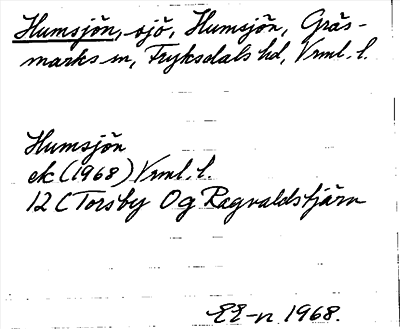 Humsjön, sjö, Humsjön, Gräs-
marks sn, Fryksdals hd, Vrml. l.
Humsjön
ek (1968) Vrml. l.
12 C Torsby Og Ragvaldstjärn
EE-n 1968.